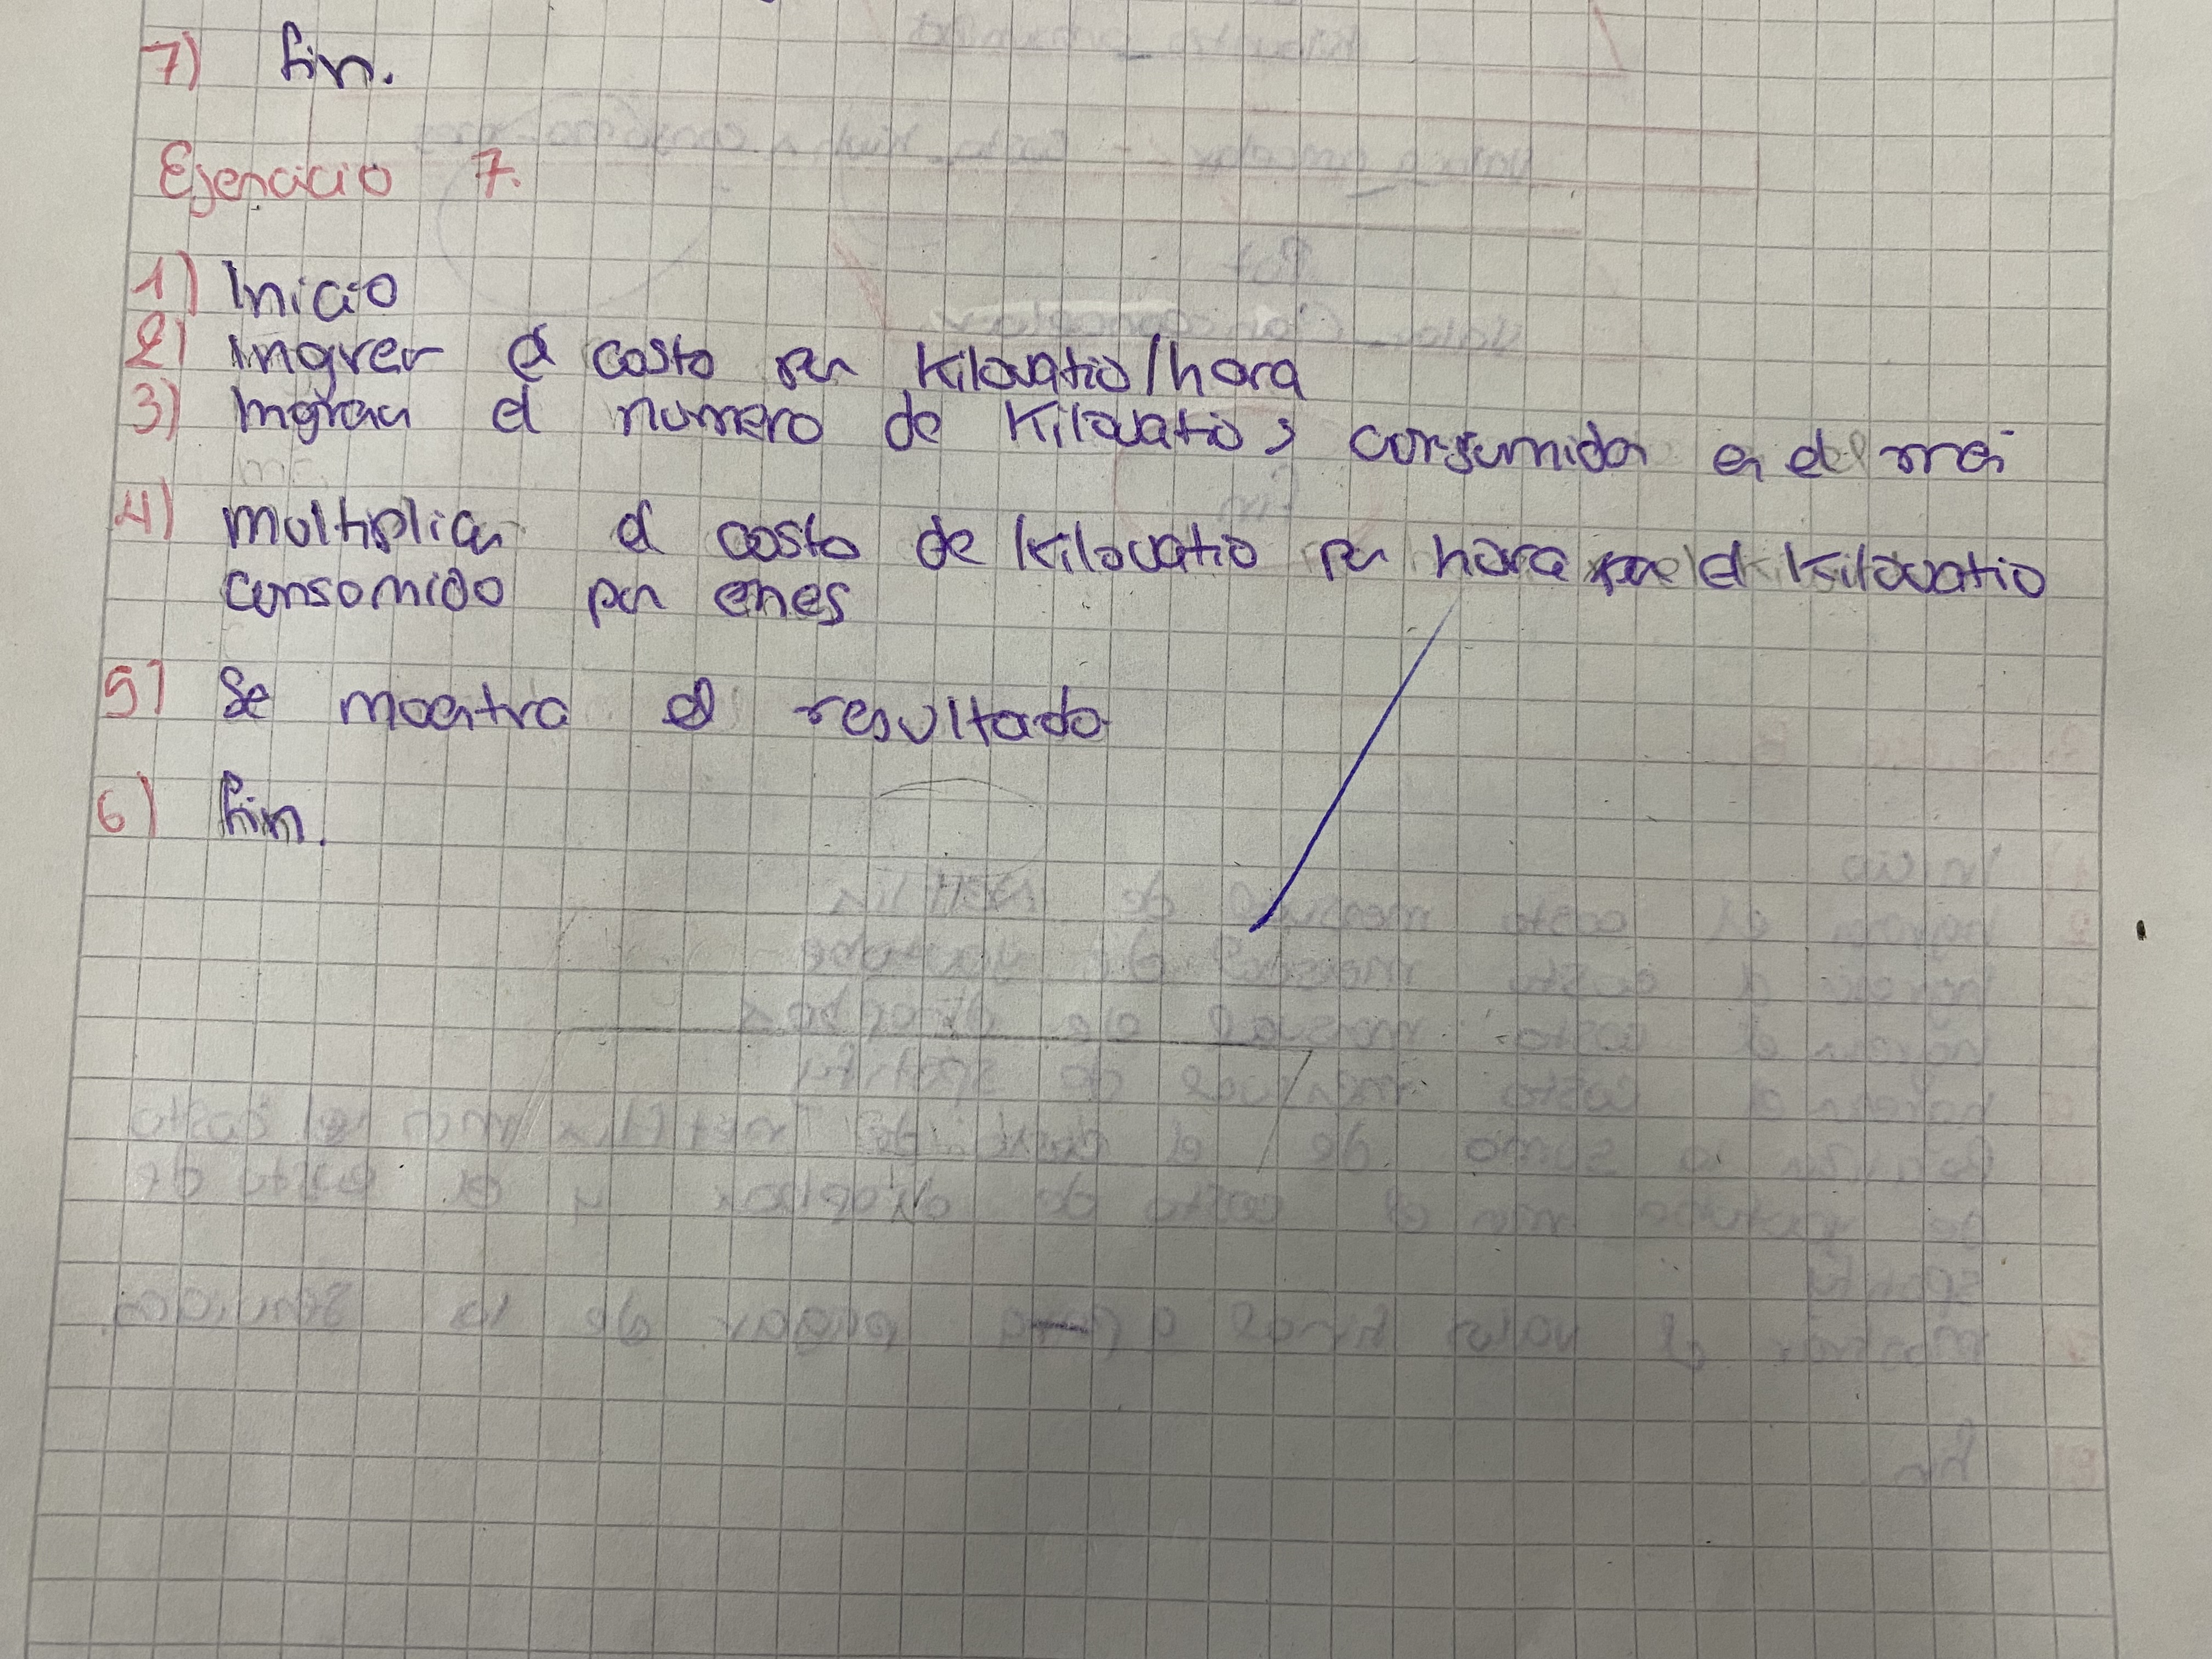 7) fin.
Ejercicio 7.
1) Inicio
2) Ingrer el costo por kilovatio/hora
3) Ingresar el numero de kilovatios consumidos en el mes
4) multiplicar el costo de kilovatio por hora por el kilovatio
consumido por el mes
5) Se muestra el resultado
6) fin.